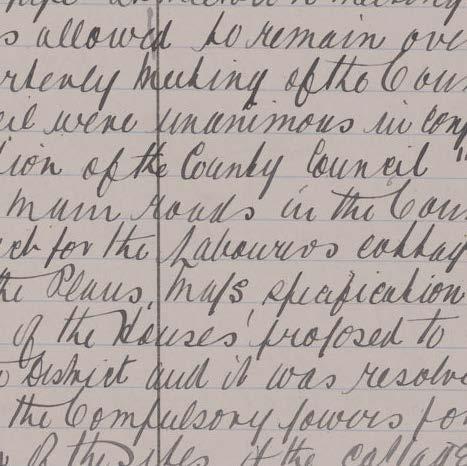 s allowed to remain ove
rterly Meeting of the Coun
cil were unanimous in con
tion of the County Council "
Main roads in the Coun
for the Labourers cottag
the Plans, Maps, specification
of the Houses proposed to
District and it was resolve
the Compulsory powers for
of the sites of the cottage